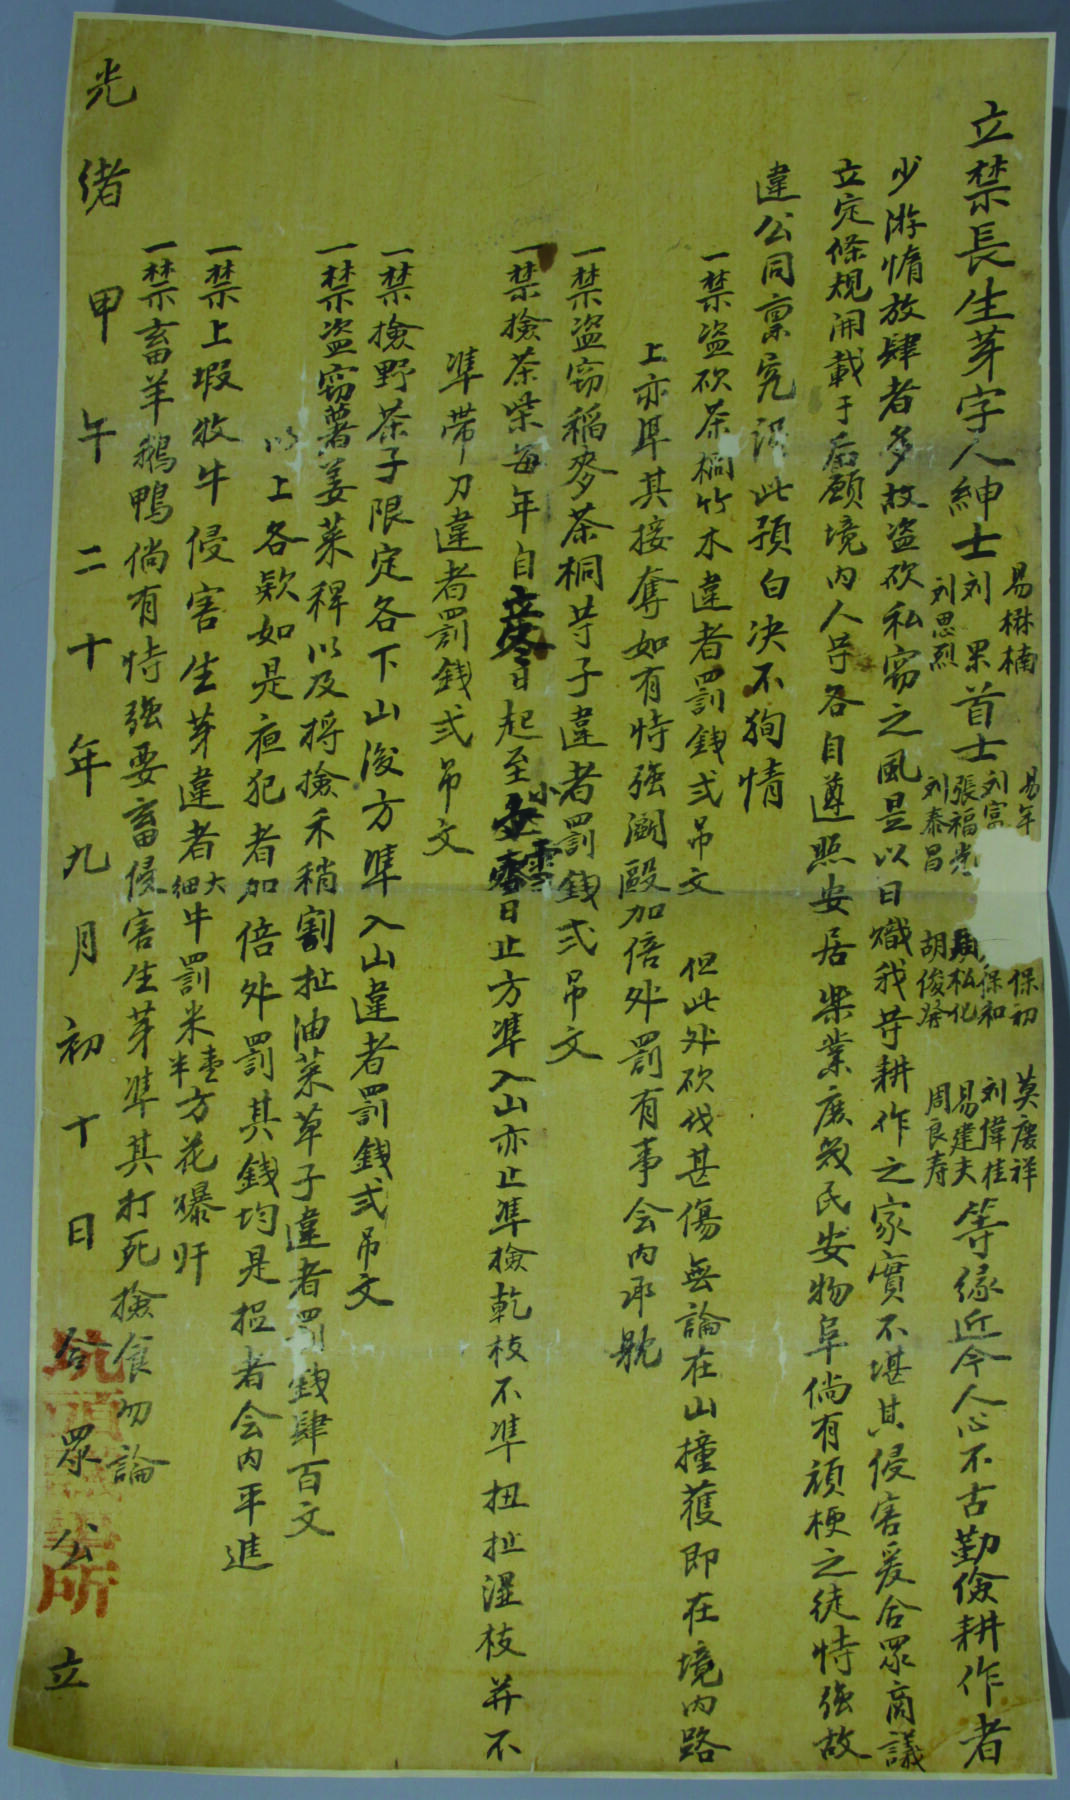 立禁長生芽字人紳士易楙楠刘果刘思烈首士易年刘宗張福光刘泰昌保初保和周松化胡俊勝莫慶祥刘偉桂易建夫周良寿等緣近今人心不古勤儉耕作者
少游惰放肆者多故盗砍私窃之風是以日熾我等耕作之家實不堪其侵害爰合眾商議
立定條規開載于后願境内人等各自遵照安居樂業庶幾民安物阜倘有頑梗之徒恃強故
違公同稟究 此預白决不狥情
一禁盗砍茶桐竹木違者罰錢弍吊文 但此外砍伐甚傷無論在山撞獲即在境内路
上亦準其接奪如有恃強鬭毆加倍外罰有事会内承躭
一禁盗窃稲麥茶桐等子違者罰錢弍吊文
一禁撿茶柴每年自立冬日起至小雪日止方準入山亦止準撿乾枝不準扭扯濕枝并不
準带刀違者罰錢弍吊文
一禁撿野茶子限定各下山後方準入山違者罰錢弍吊文
一禁盗窃薯姜菜稈以及捋撿禾稍割扯油菜草子違者罰錢肆百文
以上各欵如是夜犯者加倍外罰其錢均是捉者会内平進
一禁上塅牧牛侵害生芽違者大細牛罰米壹半方花爆阡
一禁畜羊鵝鴨倘有恃強要畜侵害生芽準其打死撿食勿論
光緒甲午二十年九月初十日合眾公立
坑頭 所